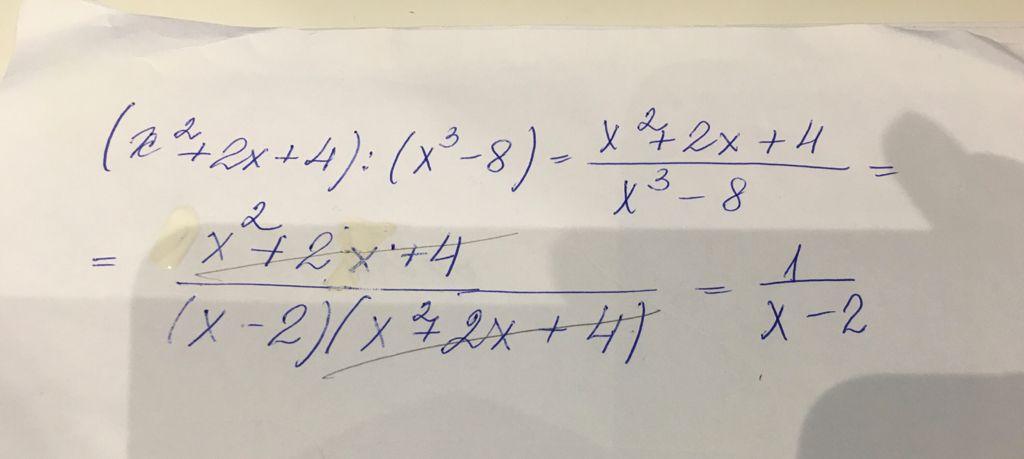 (x²+2x+4):(x³-8)=\frac{x²+2x+4}{x³-8}=
=\frac{x²+2x+4}{(x-2)(x²+2x+4)}=\frac{1}{x-2}